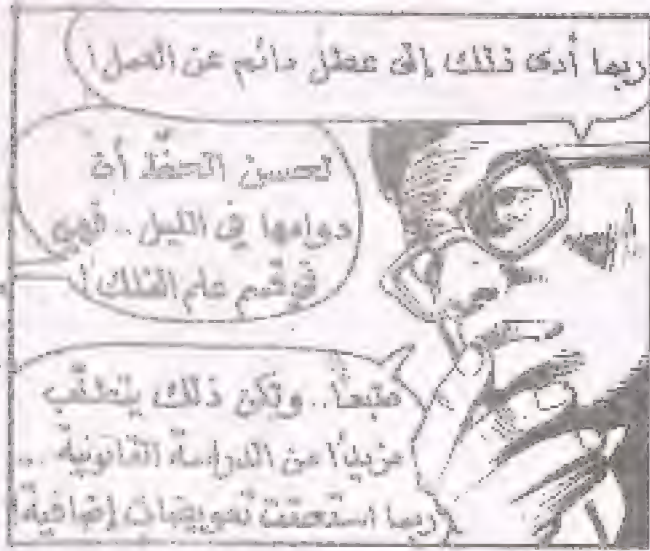 ربما أدى ذلك إلى عطل دائم عن العمل!
لحسن الحظ أن
دوامها في الليل .. فهي
في قسم علم الفلك!
طبعاً.. ولكن ذلك يتطلب
مزيداً من الدراسة القانونية ..
ربما استحقت تعويضات إضافية!